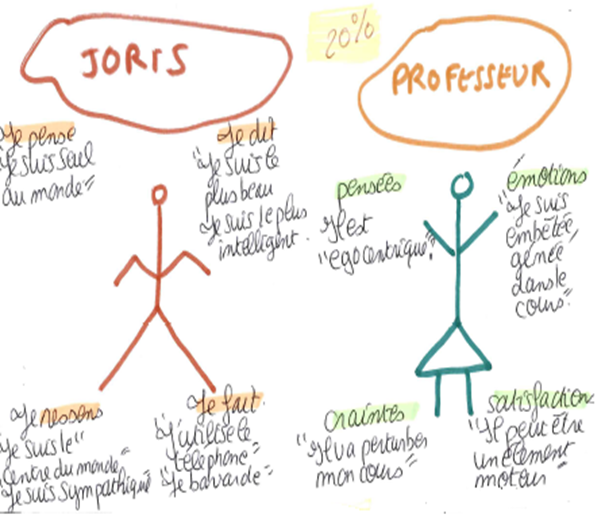 JORIS
20%
PROFESSEUR
Je pense
"Je suis seul
au monde"
Je dit
"Je suis le
plus beau
Je suis le plus
intelligent.
pensées
Il est
"egocentrique".
émotions
"Je suis
embêtée,
gênée
dans le
cours."
Je ressens
"Je suis le
centre du monde"
"Je suis sympathique
Je fait
"J'utilise le
téléphone"
"Je bavarde"
craintes
"Il va perturber
mon cours"
satisfaction
"Il peut être
un élement
moteur"